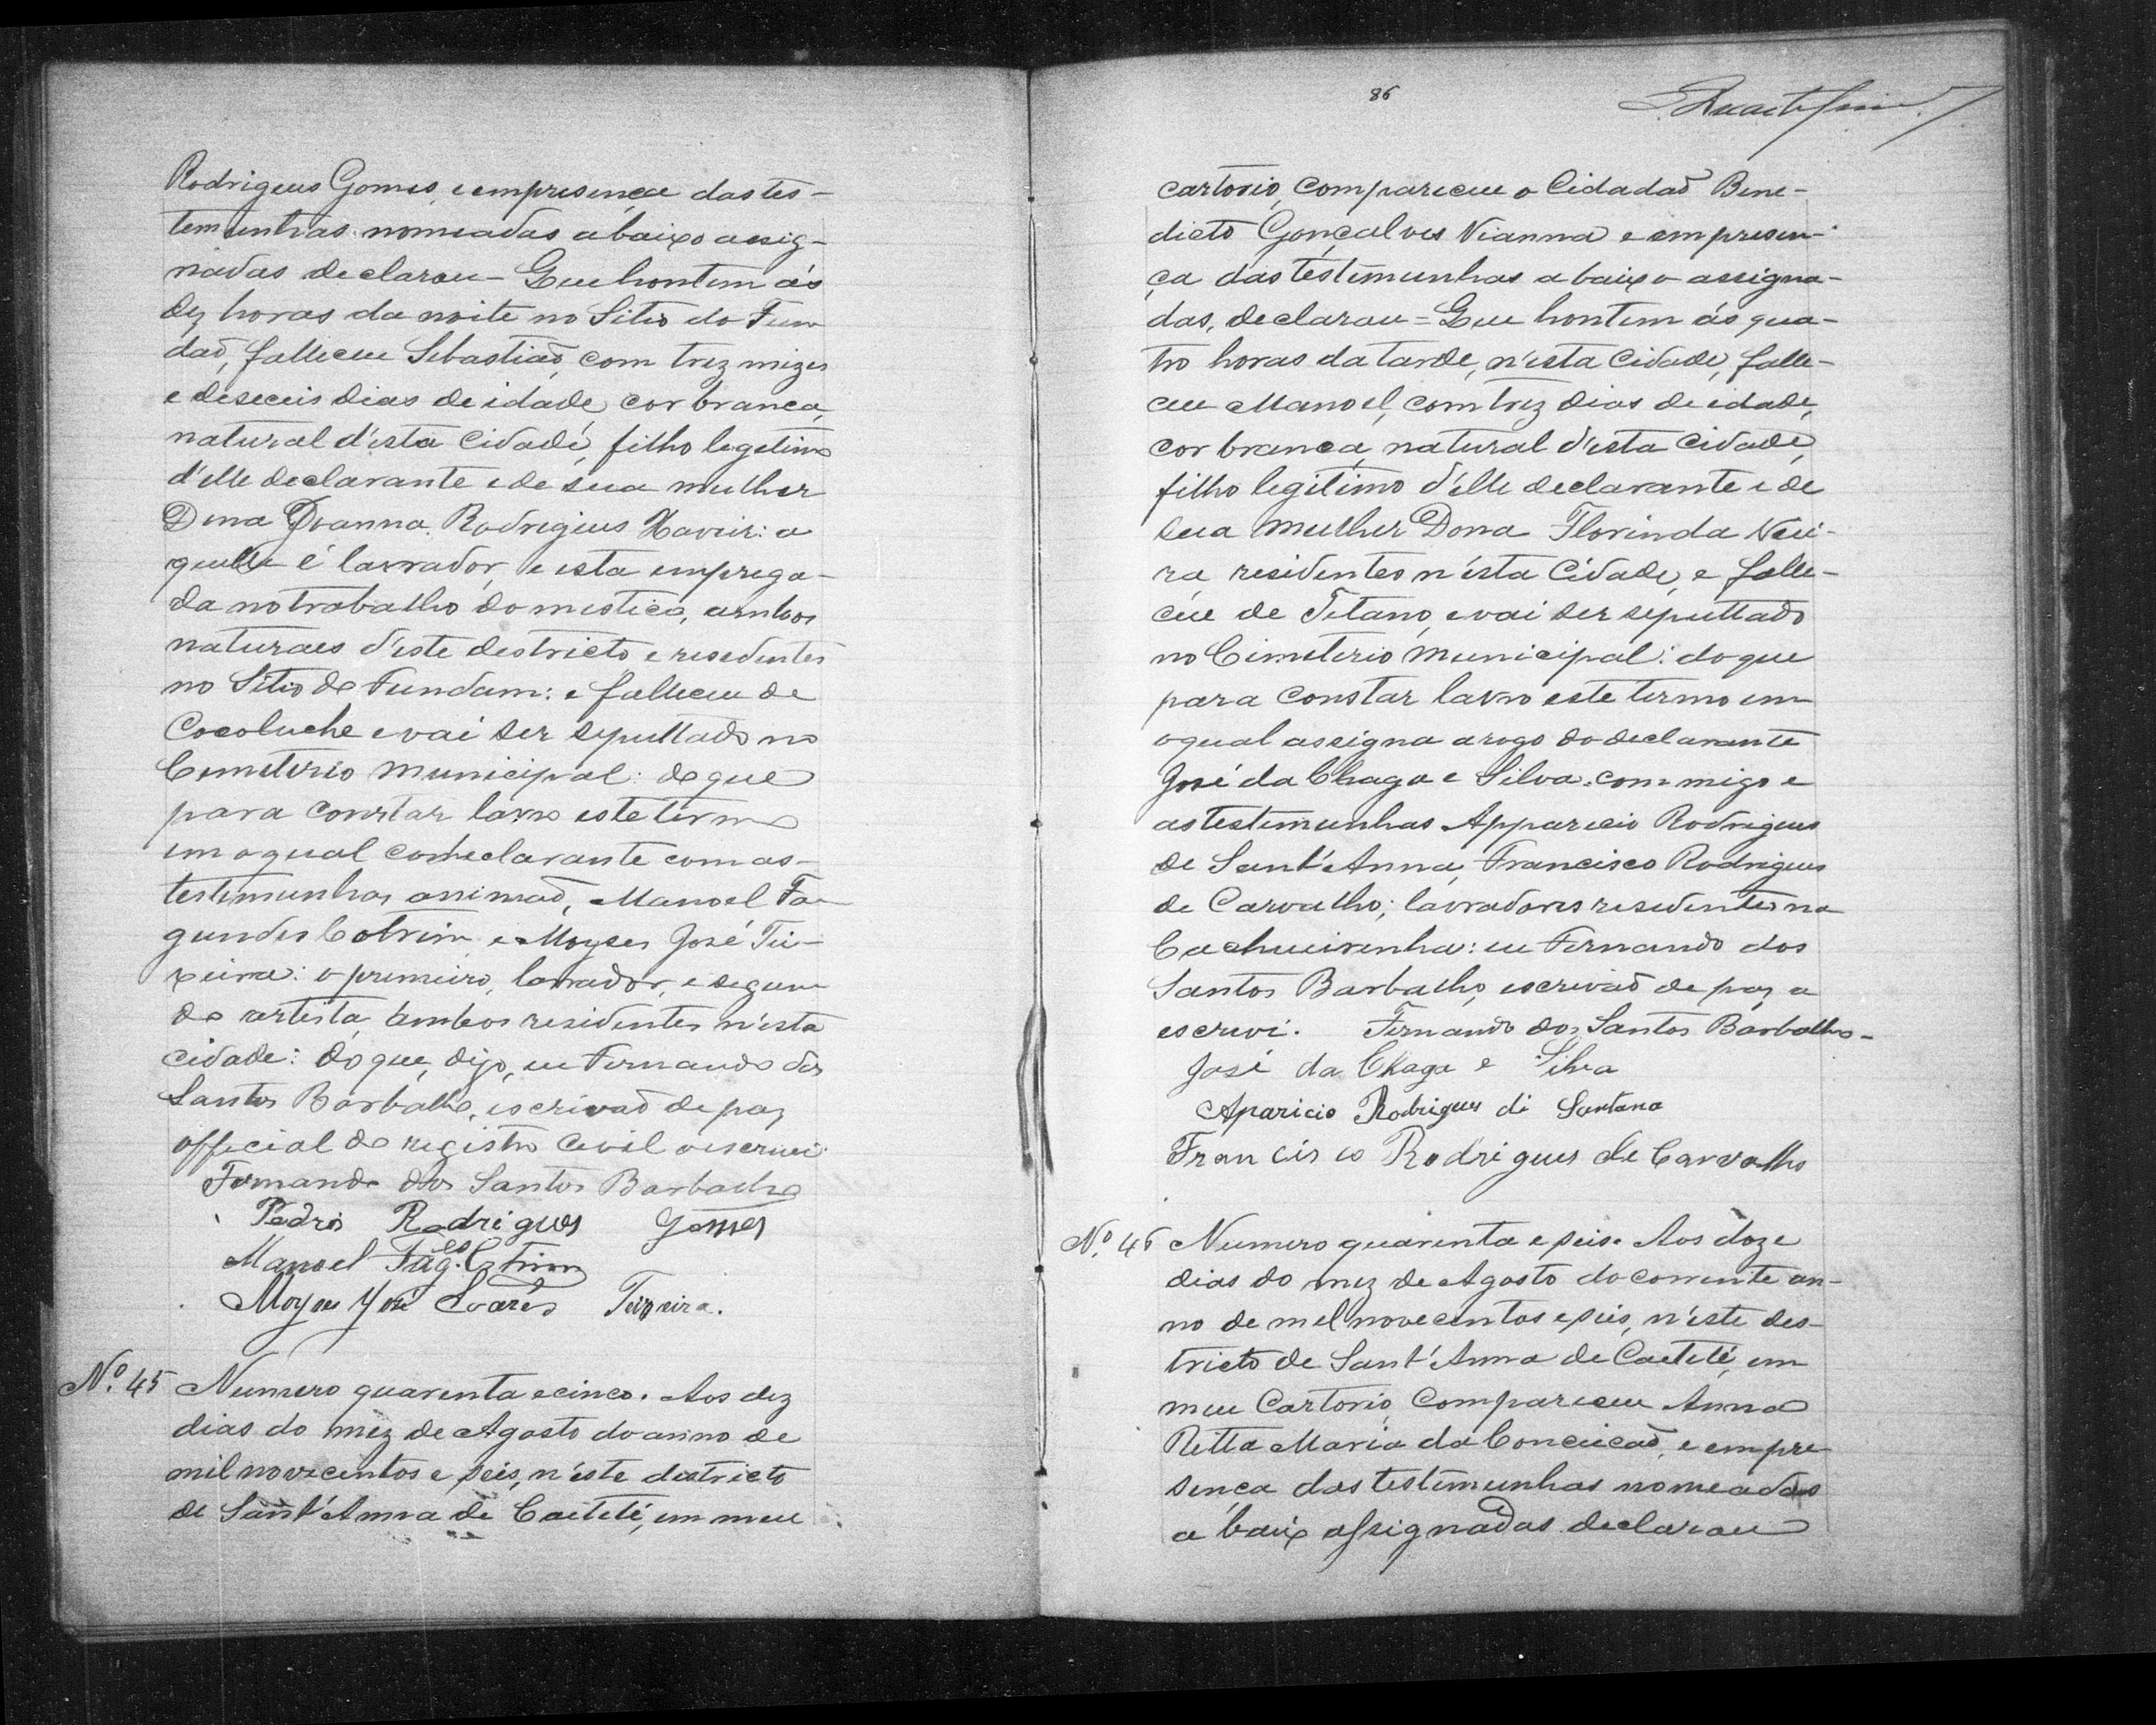 Rodrigues Gomes, e empresença das tes-
temunhas nomeadas abaixo assig-
nadas declarou - Que hontem ás
dez horas da noite no Sitio do Fun
daõ, falleceu Sebastiaõ, com trez mizes
e deseceis dias de idade, cor branca,
natural d'esta Cidade, filho legitimo
d'elle declarante e de sua mulher
Dona Joanna Rodrigues Xavier: a
quelle é lavrador, e esta emprega-
da no trabalho domestico, ambos
naturaes d'este destricto e resedentes
no Sitio de Fundam: e falleceu de
Cocoluche e vai ser sepultado no
Cemeterio Municipal: do que
para constar lavro este termo
em o qual com declarante com as
testemunhas assinaõ, Manoel Fa-
gundes Cotrim, e Moyses José Tei-
xeira: o premeiro, lavrador, e segun
do artista, ambos residentes n'esta
cidade: do que, digo, eu Fernando dos
Santos Barbalho, escrivaõ de paz
official do registro Civil o escrevi.
Fernando dos Santos Barbalho
Pedro Rodrigues Gomes
Manoel Fag.es Cotrim
Moyses José Soares Teixeira.
N.º 45 Numero quarenta e cinco. Aos dez
dias do mez de Agosto do anno de
mil novecentos e seis, n'este districto
de Sant'Anna de Caeteté, em meu
86
cartorio, compareceu o Cidadaõ Bene-
dicto Gonçalves Vianna e em presen-
ça das testemunhas abaixo assigna-
das, declarou = Que hontem ás qua-
tro horas da tarde, n'esta Cidade, falle-
ceu Manoel, com trez dias de idade,
cor branca, natural d'esta Cidade,
filho legitimo d'elle declarante e de
sua mulher Dona Florinda Viei-
ra residentes n'esta Cidade, e falle-
ceu de Tetano, e vai ser sepultado
no Cimeterio Municipal: do que
para constar lavro este termo em
o qual assigna a rogo do declarante
José da Chaga e Silva commigo e
as testemunhas Apparicio Rodrigues
de Sant'Anna, Francisco Rodrigues
de Carvalho; lavradores resedentes na
Cachueirinha: eu Fernando dos
Santos Barbalho, escrivaõ de paz o
escrevi. Fernando dos Santos Barbalho-
José da Chaga e Silva
Aparicio Rodrigues di Santana
Francisco Rodrigues de Carvalho
N.º 46 Numero quarenta e seis. Aos doze
dias do mez de Agosto do corrente an-
no de mel novecentos e seis, n'este des-
tricto de Sant'Anna de Caeteté, em
meu Cartorio, Compareceu Anna
Ritta Maria da Conceicaõ, e em pre
sença das testemunhas nomeadas
a baixo assignadas declarou